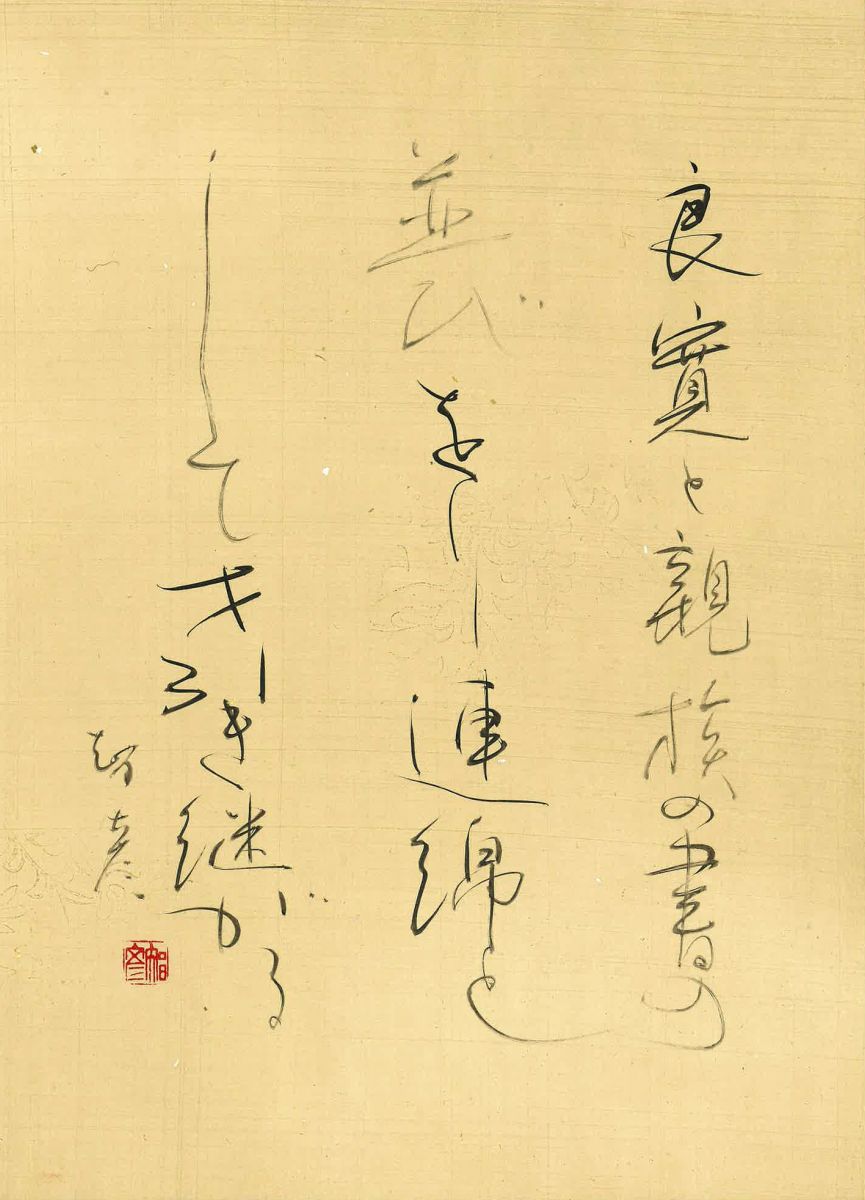 良寛と親族の書の
並びをり連綿と
して才引き継がる
智彦